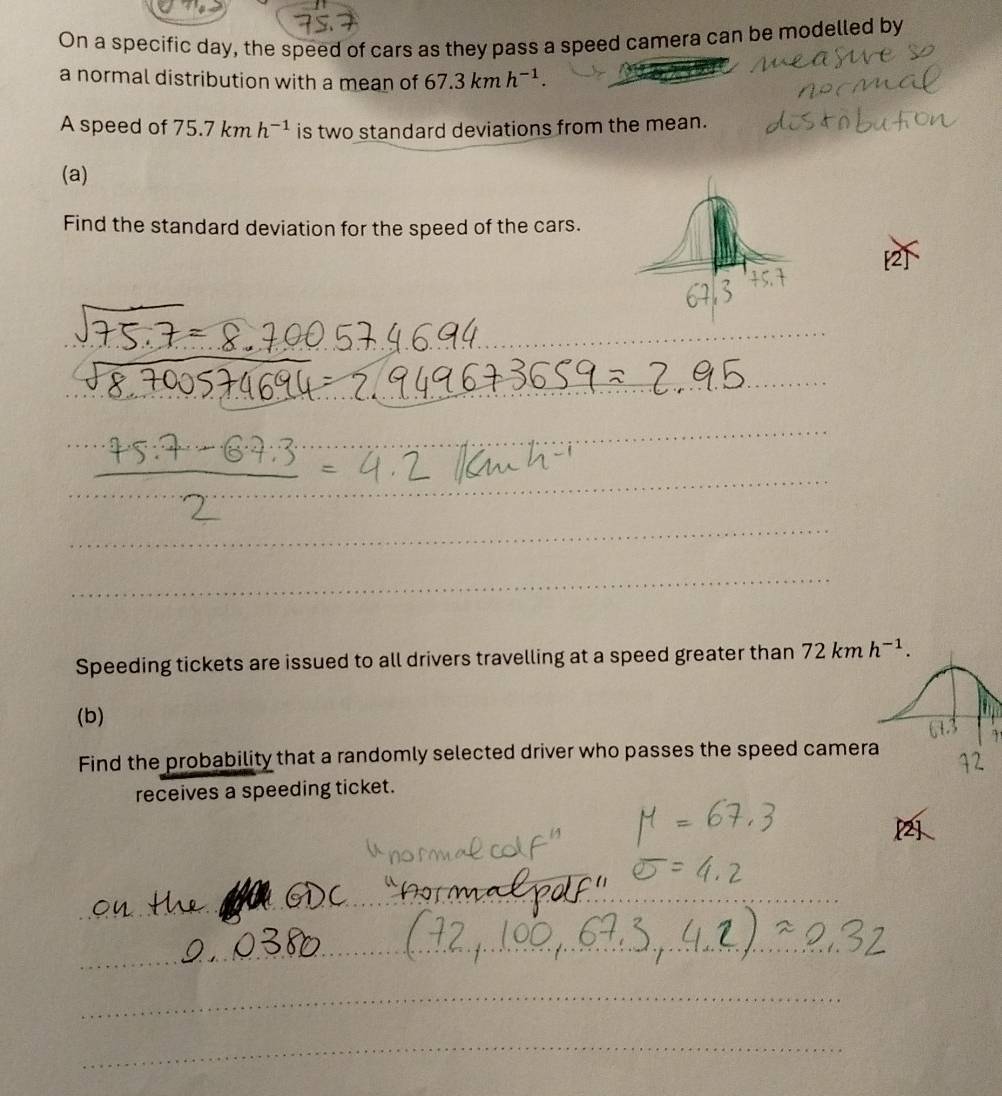 75.7
On a specific day, the speed of cars as they pass a speed camera can be modelled by
a normal distribution with a mean of 67.3 km h⁻¹.
measure so
normal
distribution
A speed of 75.7 km h⁻¹ is two standard deviations from the mean.
(a)
Find the standard deviation for the speed of the cars.
[2]
67.3 75.7
√75.7 = 8.700574694
√8.700574694 = 2.949673659 ≈ 2.95
(75.7 - 67.3)/2 = 4.2 km h⁻¹
Speeding tickets are issued to all drivers travelling at a speed greater than 72 km h⁻¹.
(b)
67.3
72
Find the probability that a randomly selected driver who passes the speed camera
receives a speeding ticket.
[2]
"normalcdf" μ = 67.3
σ = 4.2
on the GDC "normalpdf"
0.0380 (72, 100, 67.3, 4.2) ≈ 0.32